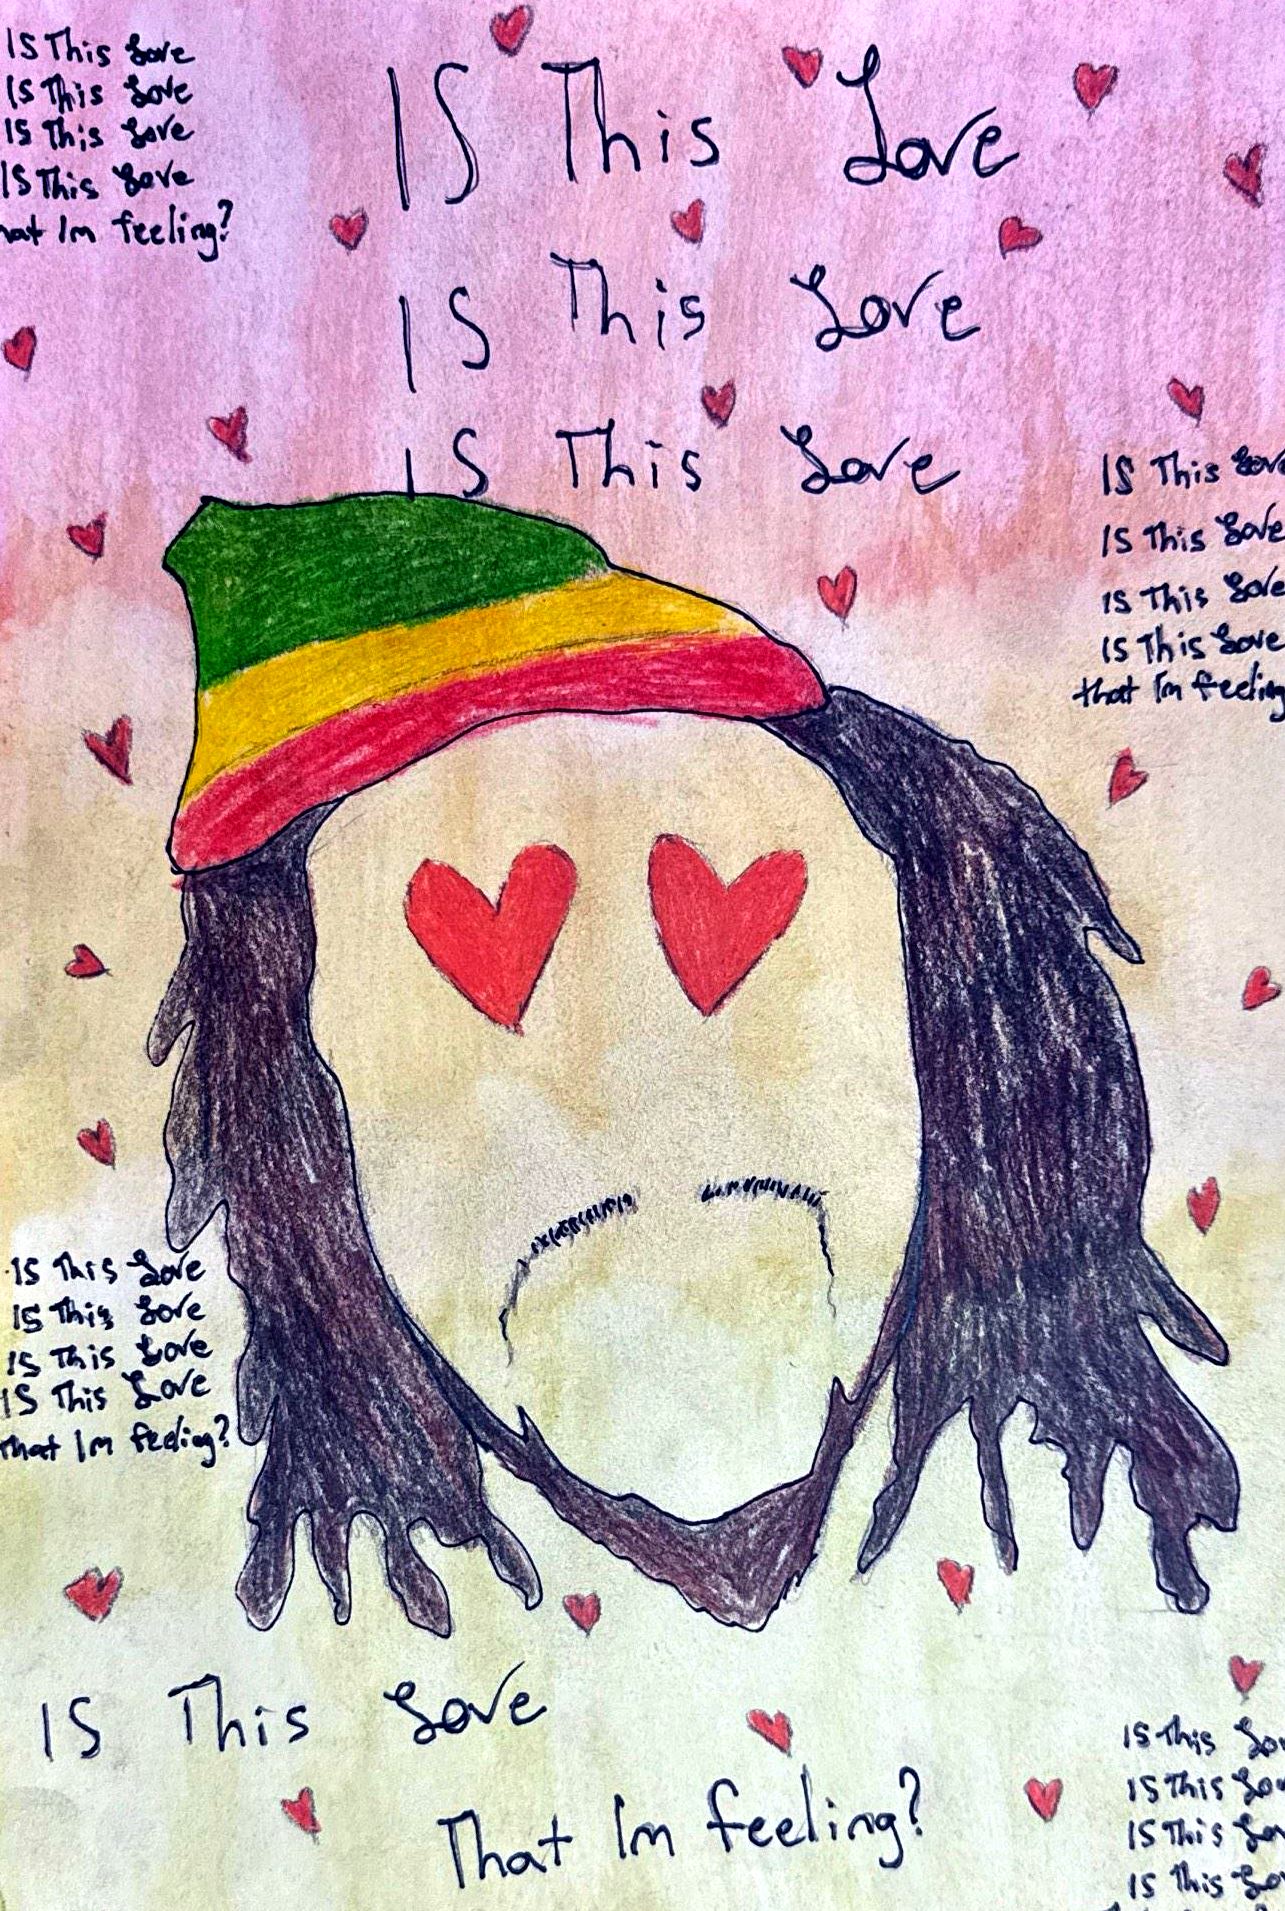 IS This Love
IS This Love
IS This Love
IS This Love
Im feeling?
IS This Love
IS This Love
IS This Love
IS This Love
IS This Love
IS This Love
IS This Love
that Im feeling
IS This Love
IS This Love
IS This Love
IS This Love
that Im feeling?
IS This Love
That Im feeling?
IS This
IS This
IS This
IS This